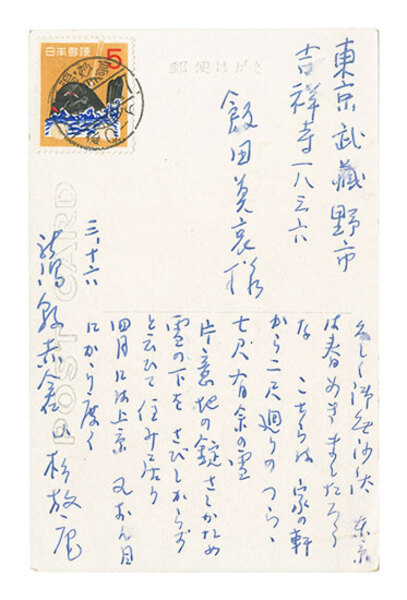 東京武蔵野市
吉祥寺一八三六
飯田
様
久しく御無沙汰 東京
は春めきましたろう
な こちらは 家の軒
から二尺廻りのつらゝ
七尺有余の雪
片意地の錠さしかため
雪の下をさびしからず
と云ひて住みて居り
四月には上京 又お目
にかゝり度く
三、十六
新潟 赤倉 山
日本郵便 5
郵便はがき
POST CARD